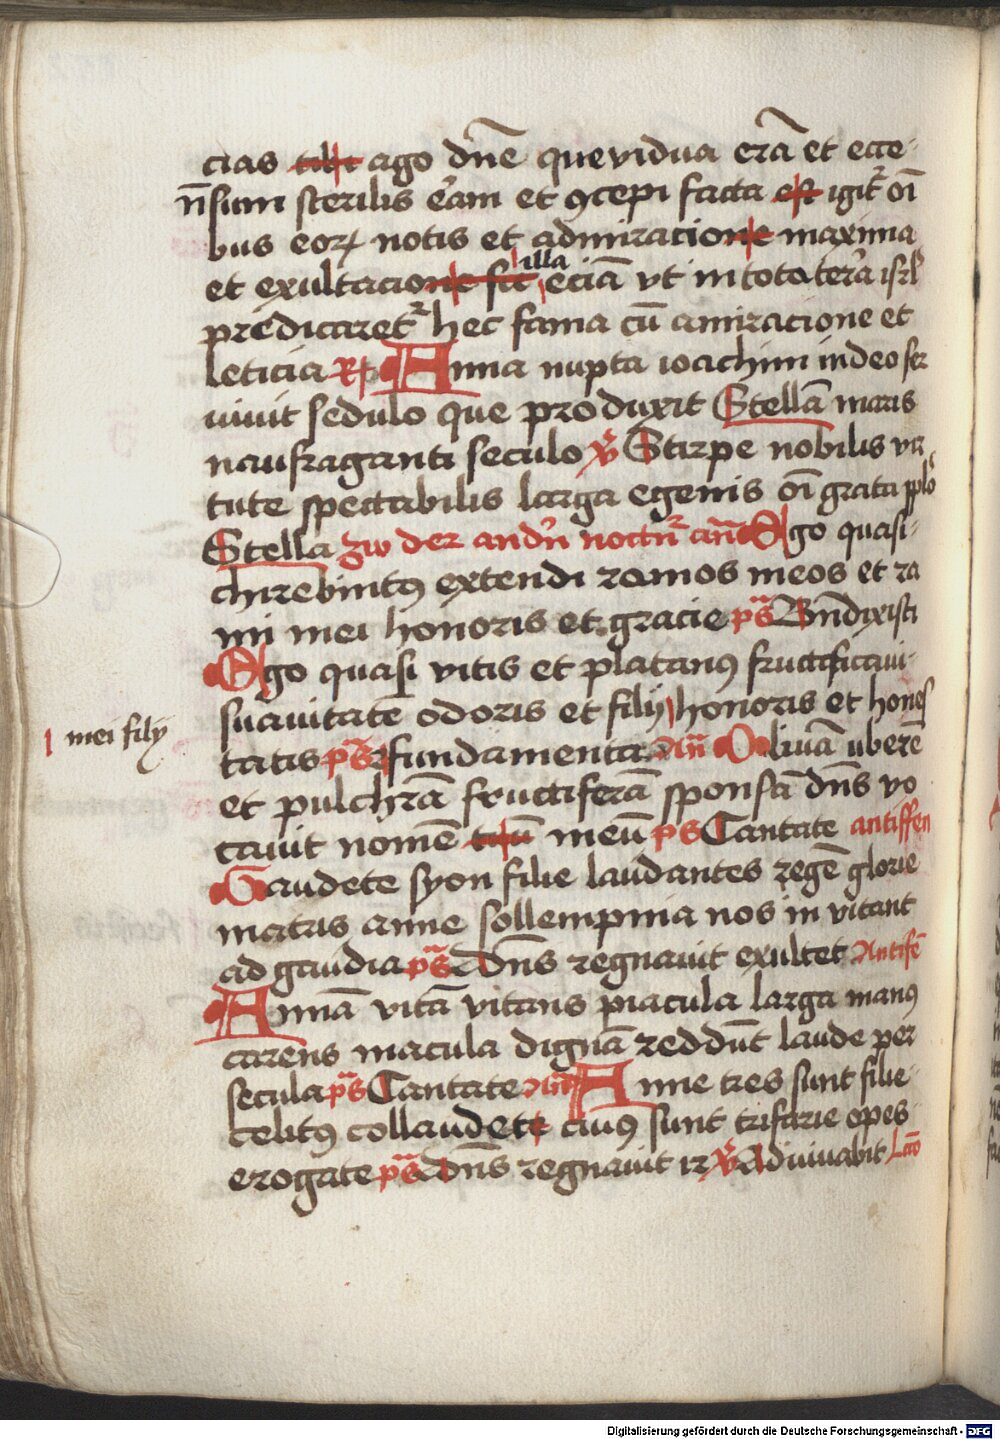 cias tibi ago dn̄e que vidua erā et ecce
n̄ sum sterilis erām et ꝯcepi facta est igit᷑ oī
bus eoꝝ notis et admiracione maxima
et exultacione sic illa eciā vt in tota terra isrl̄
predicaret᷑ hec fama cū amiracione et
leticia R Anna nupta ioachim in deo ser
uiuit sedulo que produxit Stellā maris
naufraganti seculo v̄ Stirpe nobilis vir
tute spectabilis larga egenis oī grata pplo
Stella zw der andn̄ noctn᷑ an̄ Ego quasi
therebintꝰ extendi ramos meos et ra
mi mei honoris et gracie ps Bn̄dixisti
Ego quasi vitis et platanꝰ fructificaui
suauitatē odoris et filij honoris et hones
I mei filij
tatis ps fundamenta an̄ Oliuā uberē
et pulchrā fructiferā sponsā dn̄s vo
cauit nomē tuū meū ps Cantate antiffen
Gaudete syon filie laudantes regē glorie
matris anne sollempnia nos inuitant
ad gaudia ps Dn̄s regnauit exultet Antifē
Annā vitā vitans piacula larga manꝰ
carens macula dignā reddūt laude per
secula ps Cantate an̄ Anne tres sunt filie
celitꝰ collaudete cuiꝰ sunt trifarie opes
erogate ps Dn̄s regnauit ir v̄ Adiuuabit Lc̄o
Digitalisierung gefördert durch die Deutsche Forschungsgemeinschaft - DFG